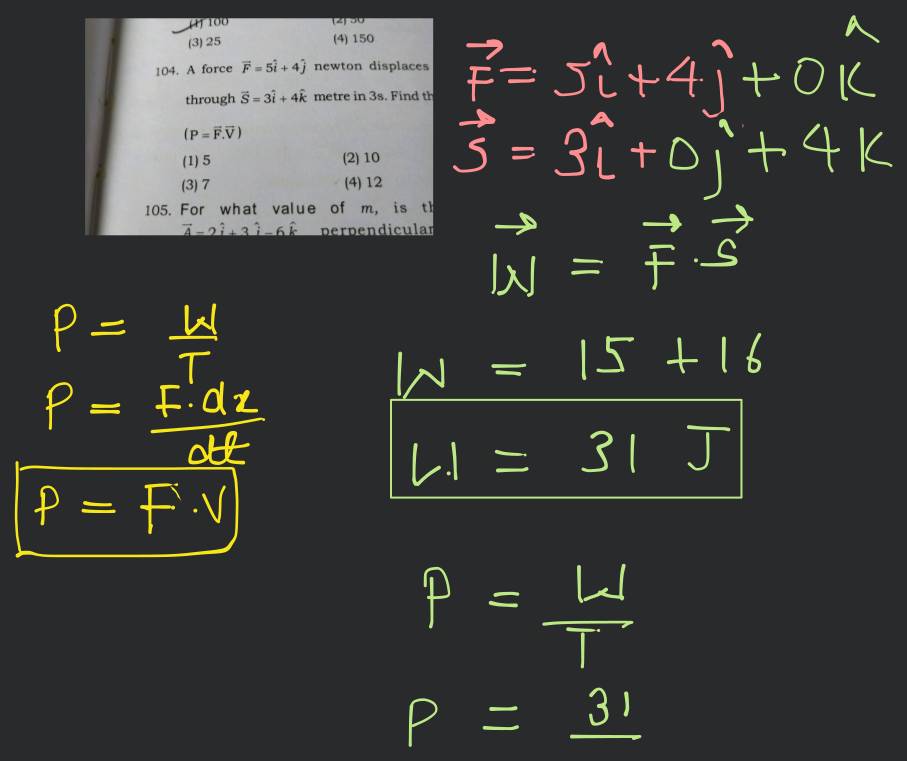 (1) 100 (2) 50
(3) 25 (4) 150
104. A force F⃗ = 5î + 4ĵ newton displaces
through S⃗ = 3î + 4k̂ metre in 3s. Find th
(P = F⃗.V⃗)
(1) 5 (2) 10
(3) 7 (4) 12
105. For what value of m, is th
A⃗ = 2î + 3ĵ – 6k̂ perpendicular
F⃗ = 5î + 4ĵ + 0k̂
S⃗ = 3î + 0ĵ + 4K
W⃗ = F⃗ . S⃗
P = W/T
P = F.dx/dt
P = F.V
W = 15 + 16
W = 31 J
P = W/T
P = 31